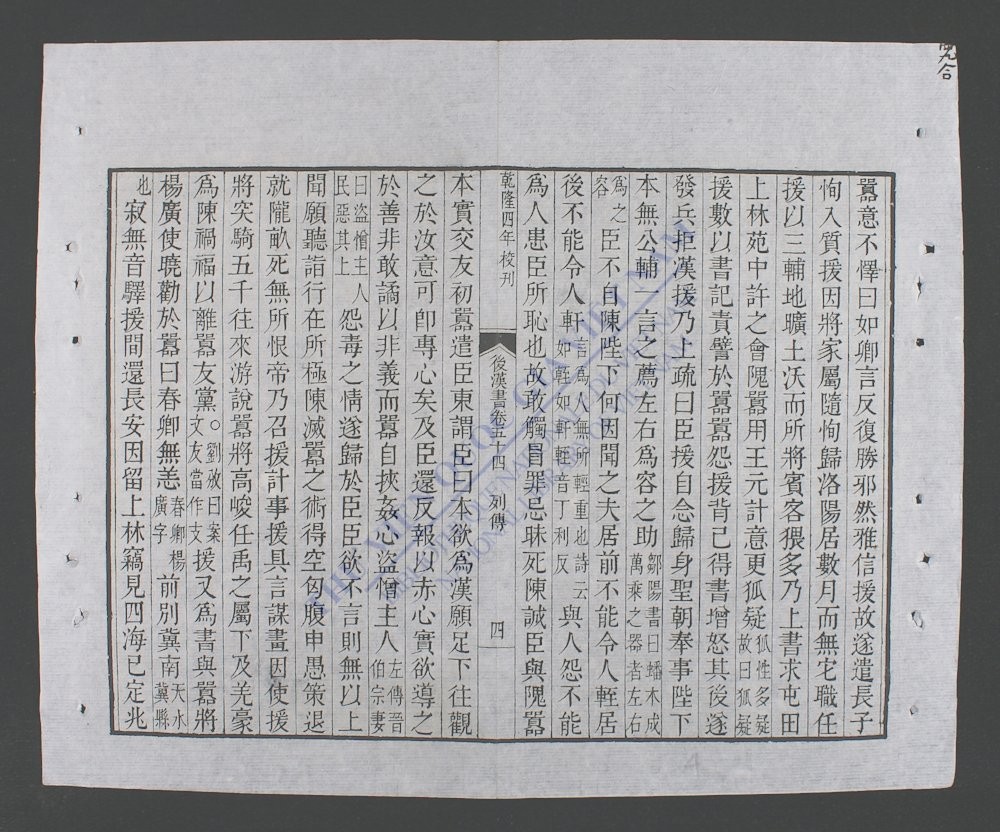 囂意不懌曰如卿言反復勝邪然雅信援故遂遣長子
恂入質援因將家屬隨恂歸洛陽居數月而無宅職任
援以三輔地曠土沃而所將賓客猥多乃上書求屯田
上林苑中許之會隗囂用王元計意更狐疑狐性多疑故曰狐疑
援數以書記責譬於囂囂怨援背己得書增怒其後遂
發兵拒漢援乃上疏曰臣援自念歸身聖朝奉事陛下
本無公輔一言之薦左右為容之助鄒陽書曰蟠木成萬乘之器者左右
為之容臣不自陳陛下何因聞之夫居前不能令人輊居
後不能令人軒言為人無所輕重也詩云如輊如軒輊音丁利反與人怨不能
為人患臣所恥也故敢觸冒罪忌昧死陳誠臣與隗囂
乾隆四年校刊
後漢書卷五十四 列傳
四
本實交友初囂遣臣東謂臣曰本欲為漢願足下往觀
之於汝意可卽專心矣及臣還反報以赤心實欲導之
於善非敢譎以非義而囂自挾姦心盜憎主人左傳晉伯宗妻
曰盜憎主人民惡其上怨毒之情遂歸於臣臣欲不言則無以上
聞願聽詣行在所極陳滅囂之術得空匈腹申愚策退
就隴畝死無所恨帝乃召援計事援具言謀畫因使援
將突騎五千往來游說囂將高峻任禹之屬下及羌豪
為陳禍福以離囂友黨○劉攽曰案文友當作支援又為書與囂將
楊廣使曉勸於囂曰春卿無恙春卿楊廣字前別冀南天水冀縣
也寂無音驛援間還長安因留上林竊見四海已定兆
THE VIEN QUOC GIA VIET NAM
NATIONAL LIBRARY OF VIETNAM